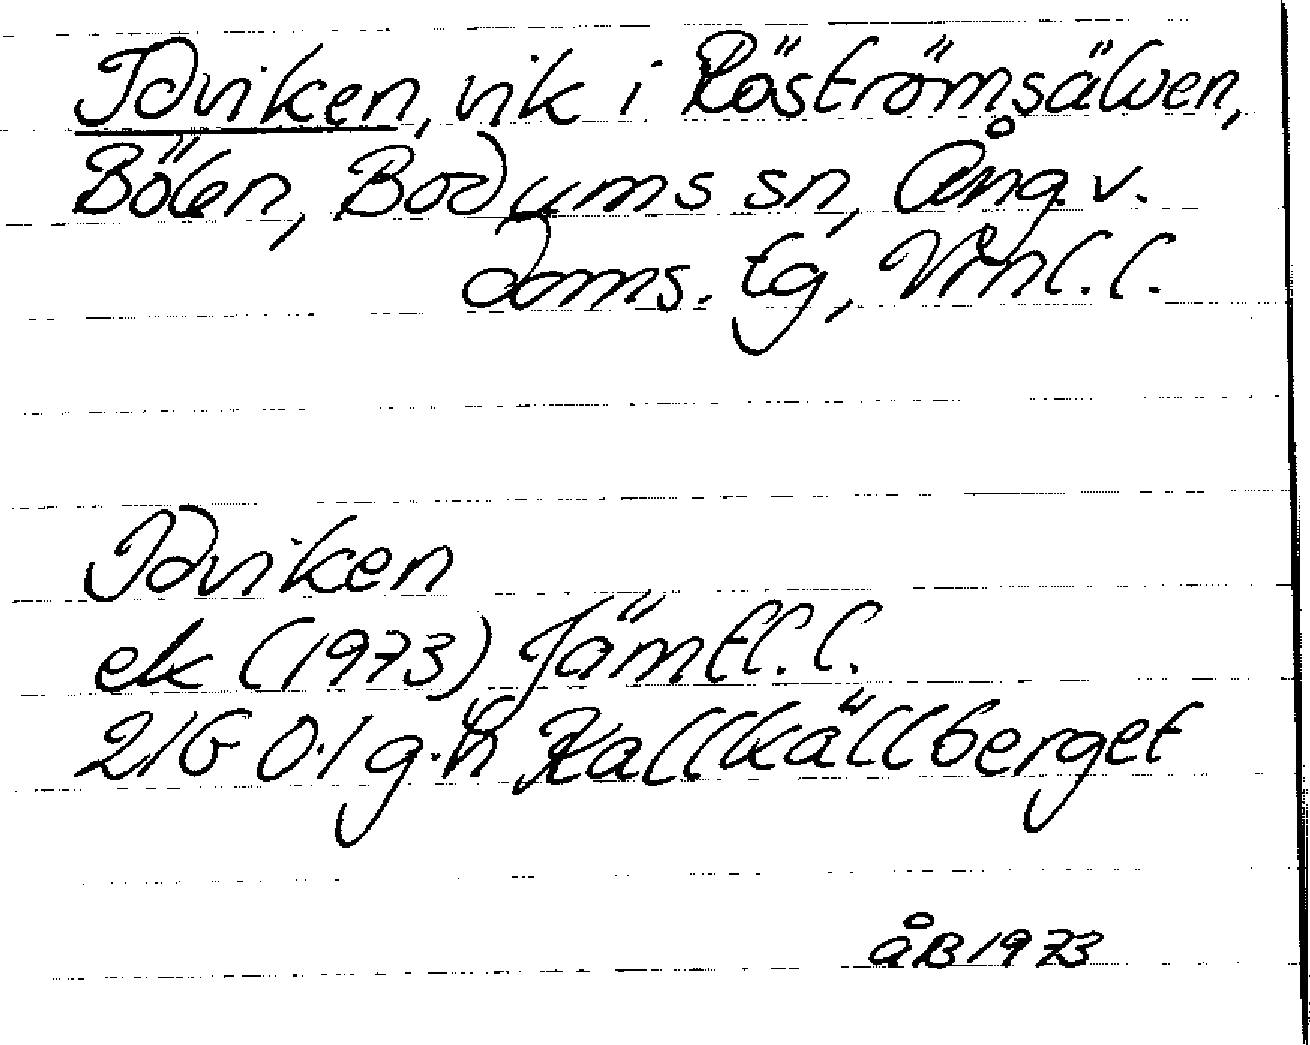 Idviken, vik i Röströmsälven,
Bölen, Bodums sn, Ång. v.
doms. tg, Vrnl. l.
Idviken
ek (1973) Jämtl. l.
21G 0-1 g-h Kallkällberget
ÅB 1973